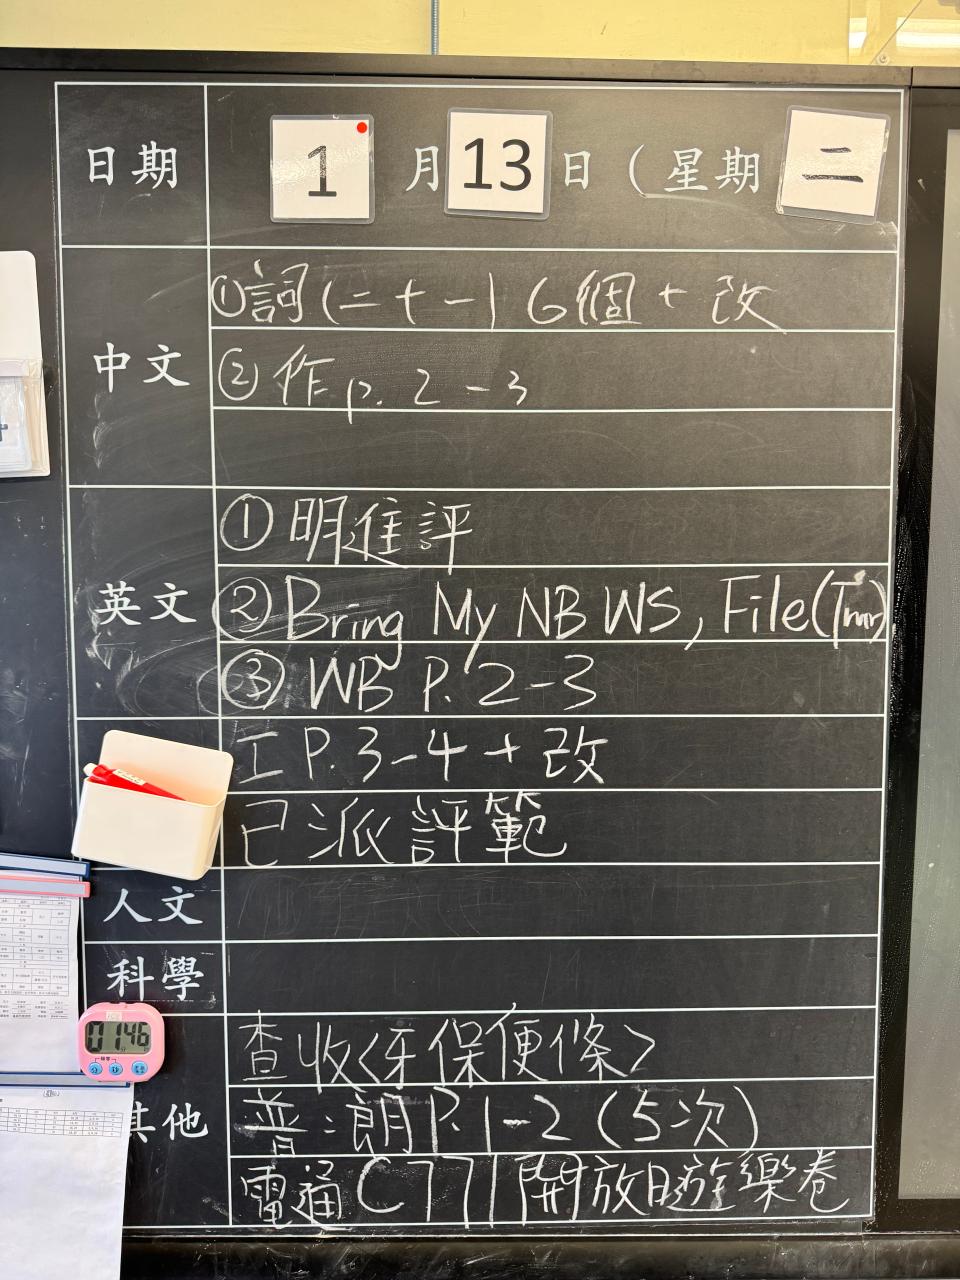 日期 1 月 13 日 (星期 二
中文
①詞(二十一) 6個 + 改
②作 p. 2-3
英文
①明進評
②Bring My NB WS, File
③WB P. 2-3
工 P. 3-4 + 改
已派評範
人文
科學
其他
查收<牙保便條>
普:朗P.1-2 (5次)
電通C771開放日遊樂卷
01 46